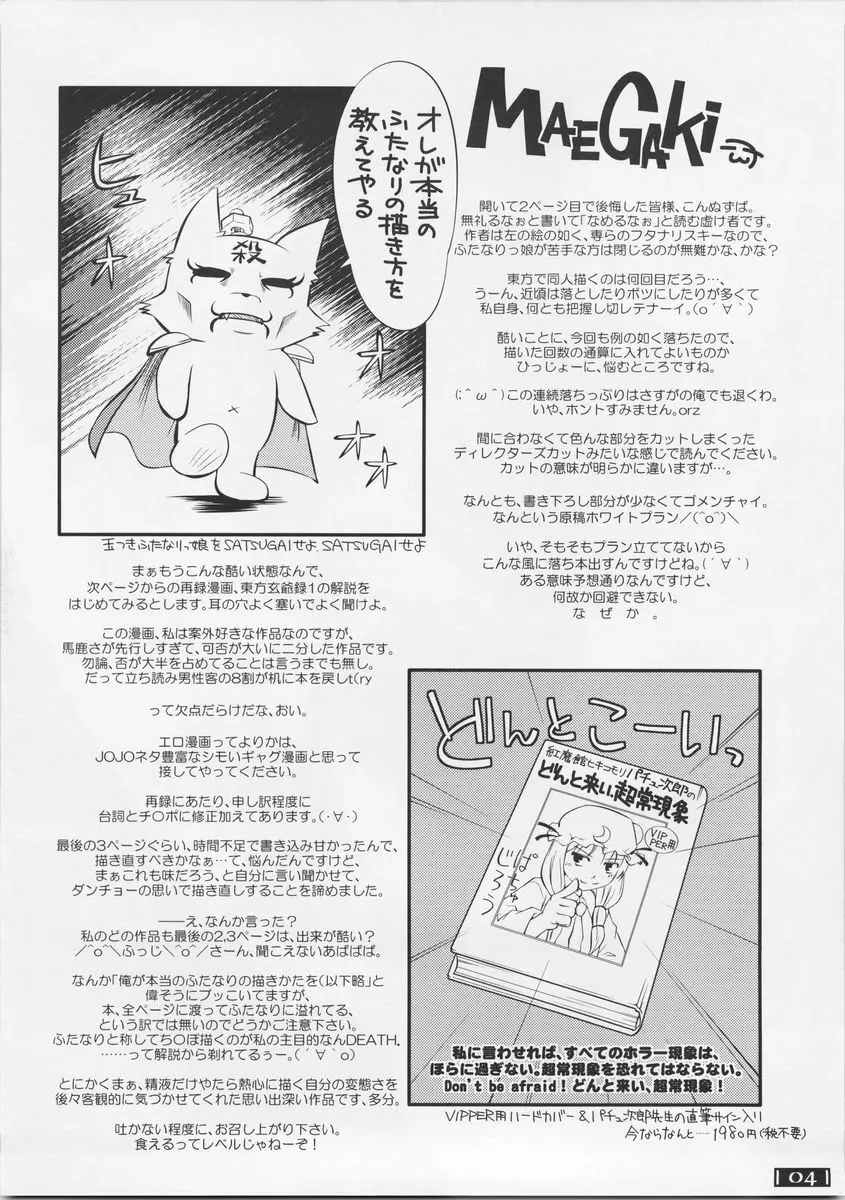 MAEGAKi
開いて2ページ目で後悔した皆様、こんぬずば。
無礼るなぉと書いて「なめるなぉ」と読む虚け者です。
作者は左の絵の如く、専らのフタナリスキーなので、
ふたなりっ娘が苦手な方は閉じるのが無難かな、かな?
東方で同人描くのは何回目だろう…、
うーん、近頃は落としたりボツにしたりが多くて
私自身、何とも把握し切レテナーイ。(o´∀`)
酷いことに、今回も例の如く落ちたので、
描いた回数の通算に入れてよいものか
ひっじょーに、悩むところですね。
(;^ω^)この連続落ちっぷりはさすがの俺でも退くわ。
いや、ホントすみません。orz
間に合わなくて色んな部分をカットしまくった
ディレクターズカットみたいな感じで読んでください。
カットの意味が明らかに違いますが…。
なんとも、書き下ろし部分が少なくてゴメンチャイ。
なんという原稿ホワイトプラン/(^o^)\
いや、そもそもプラン立ててないから
こんな風に落ち本出すんですけどね。(´∀`)
ある意味予想通りなんですけど、
何故か回避できない。
なぜか。
オレが本当の
ふたなりの描き方を
教えてやる
ヒュ
オオオ
殺
玉つきふたなりっ娘をSATSUGAIせよ、SATSUGAIせよ
まぁもうこんな酷い状態なんで、
次ページからの再録漫画、東方玄爺録1の解説を
はじめてみるとします。耳の穴よく塞いでよく聞けよ。
この漫画、私は案外好きな作品なのですが、
馬鹿さが先行しすぎて、可否が大いに二分した作品です。
勿論、否が大半を占めてることは言うまでも無し。
だって立ち読み男性客の8割が机に本を戻しt(ry
って欠点だらけだな、おい。
エロ漫画ってよりかは、
JOJOネタ豊富なシモいギャグ漫画と思って
接してやってください。
再録にあたり、申し訳程度に
台詞とチ○ポに修正加えてあります。(・∀・)
最後の3ページぐらい、時間不足で書き込み甘かったんで、
描き直すべきかなぁ…て、悩んだんですけど、
まぁこれも味だろう、と自分に言い聞かせて、
ダンチョーの思いで描き直しすることを諦めました。
――え、なんか言った?
私のどの作品も最後の2,3ページは、出来が酷い?
/^o^\ふっじ\^o^/さーん、聞こえないあばばば。
なんか「俺が本当のふたなりの描きかたを(以下略)」と
偉そうにブッこいてますが、
本、全ページに渡ってふたなりに溢れてる、
という訳では無いのでどうかご注意下さい。
ふたなりと称してち○ぽ描くのが私の主目的なんDEATH.
……って解説から剥れてるぅー。(´∀`o)
とにかくまぁ、精液だけやたら熱心に描く自分の変態さを
後々客観的に気づかせてくれた思い出深い作品です、多分。
吐かない程度に、お召し上がり下さい。
食えるってレベルじゃねーぞ!
どんとこーいっ
紅魔館ヒキコモリパチュ次郎の
どんと来い、超常現象
VIP
PER用
ぱちゅ
じろう
私に言わせれば、すべてのホラー現象は、
ほらに過ぎない。超常現象を恐れてはならない。
Don't be afraid! どんと来い、超常現象!
VIPPER用ハードカバー&パチュ次郎先生の直筆サイン入り
今ならなんと……1980円(税不要)
04